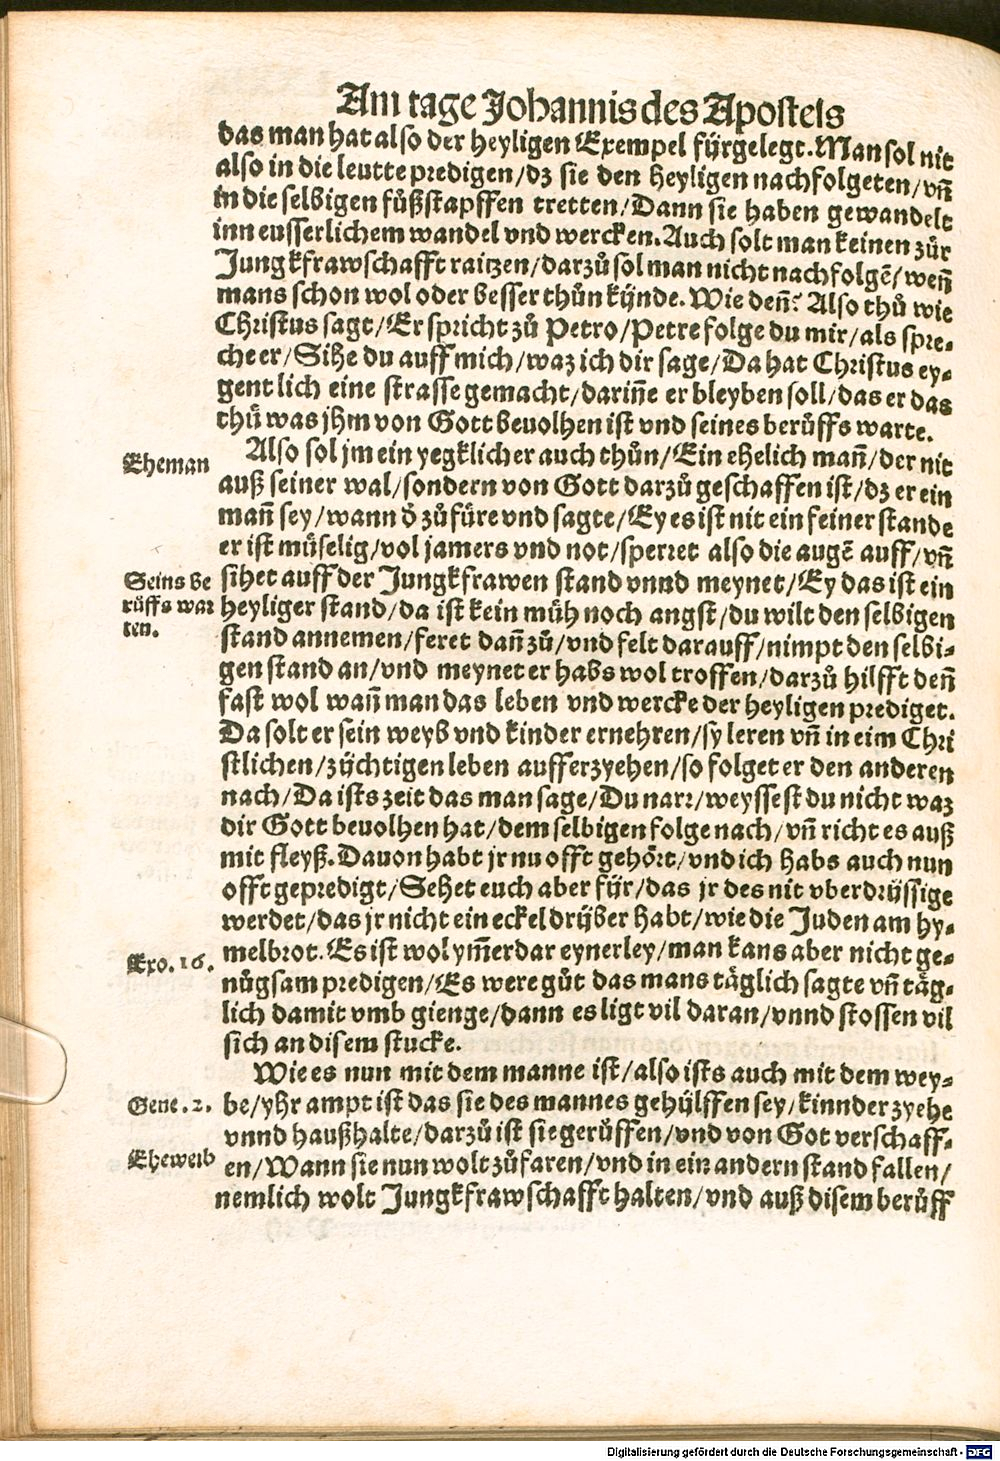 Am tage Johannis des Apostels
das man hat also der heyligen Exempel fürgelegt. Man sol nit
also in die leutte predigen/dz sie den heyligen nachfolgeten/vn̄
in die selbigen fůßstapffen tretten/Dann sie haben gewandelt
inn eusserlichem wandel vnd wercken. Auch solt man keinen zůr
Jungkfrawschafft raitzen/darzů sol man nicht nachfolgē/weñ
mans schon wol oder besser thůn künde. Wie deñ? Also thů wie
Christus sagt/Er spricht zů Petro/Petre folge du mir/als spre-
che er/Sihe du auff mich/waz ich dir sage/Da hat Christus ey-
gentlich eine strasse gemacht/dariñe er bleyben soll/das er das
thů was jhm von Gott beuolhen ist vnd seines berůffs warte.
Eheman
Also sol jm ein yegklicher auch thůn/Ein ehelich mañ/der nit
auß seiner wal/sondern von Gott darzů geschaffen ist/dz er ein
mañ sey/wann d̄ zůfüre vnd sagte/Ey es ist nit ein feiner stande
er ist müselig/vol jamers vnd not/sperret also die augē auff/vn̄
Seins be
rüffs war
ten.
sihet auff der Jungkfrawen stand vnnd meynet/Ey das ist ein
heyliger stand/da ist kein müh noch angst/du wilt den selbigen
stand annemen/feret dañ zů/vnd felt darauff/nimpt den selbi-
gen stand an/vnd meynet er habs wol troffen/darzů hilfft deñ
fast wol wañ man das leben vnd wercke der heyligen prediget.
Da solt er sein weyb vnd kinder ernehren/sy leren vn̄ in eim Chri
stlichen/züchtigen leben aufferzyehen/so folget er den anderen
nach/Da ists zeit das man sage/Du narr/weyssest du nicht waz
dir Gott beuolhen hat/dem selbigen folge nach/vn̄ richt es auß
mit fleyß. Dauon habt jr nu offt gehört/vnd ich habs auch nun
offt gepredigt/Sehet euch aber für/das jr des nit vberdrüssige
werdet/das jr nicht ein eckel drüber habt/wie die Juden am hy-
Exo. 16.
melbrot. Es ist wol ym̄erdar eynerley/man kans aber nicht ge-
nůgsam predigen/Es were gůt das mans täglich sagte vn̄ täg-
lich damit vmb gienge/dann es ligt vil daran/vnnd stossen vil
sich an disem stucke.
Wie es nun mit dem manne ist/also ists auch mit dem wey-
Gene. 2.
be/yhr ampt ist das sie des mannes gehülffen sey/kinnder zyehe
vnnd haußhalte/darzů ist sie gerůffen/vnd von Got verschaff-
Eheweib
en/Wann sie nun wolt zůfaren/vnd in ein andern stand fallen/
nemlich wolt Jungkfrawschafft halten/vnd auß disem berůff
Digitalisierung gefördert durch die Deutsche Forschungsgemeinschaft - DFG